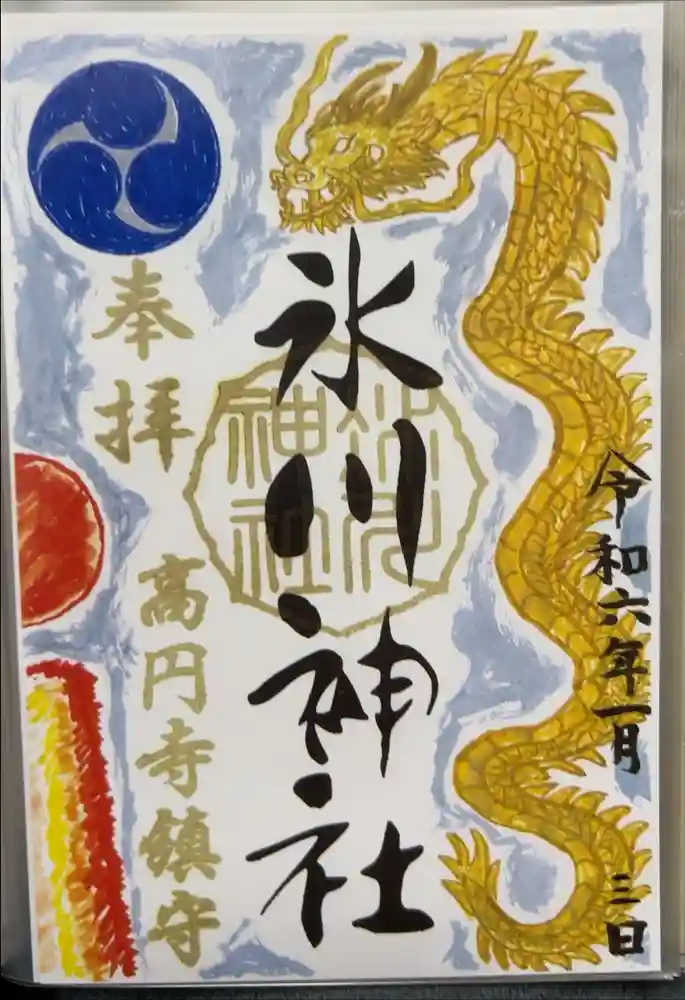 令和六年一月三日
氷川神社
氷川神社
奉拝
高円寺鎮守